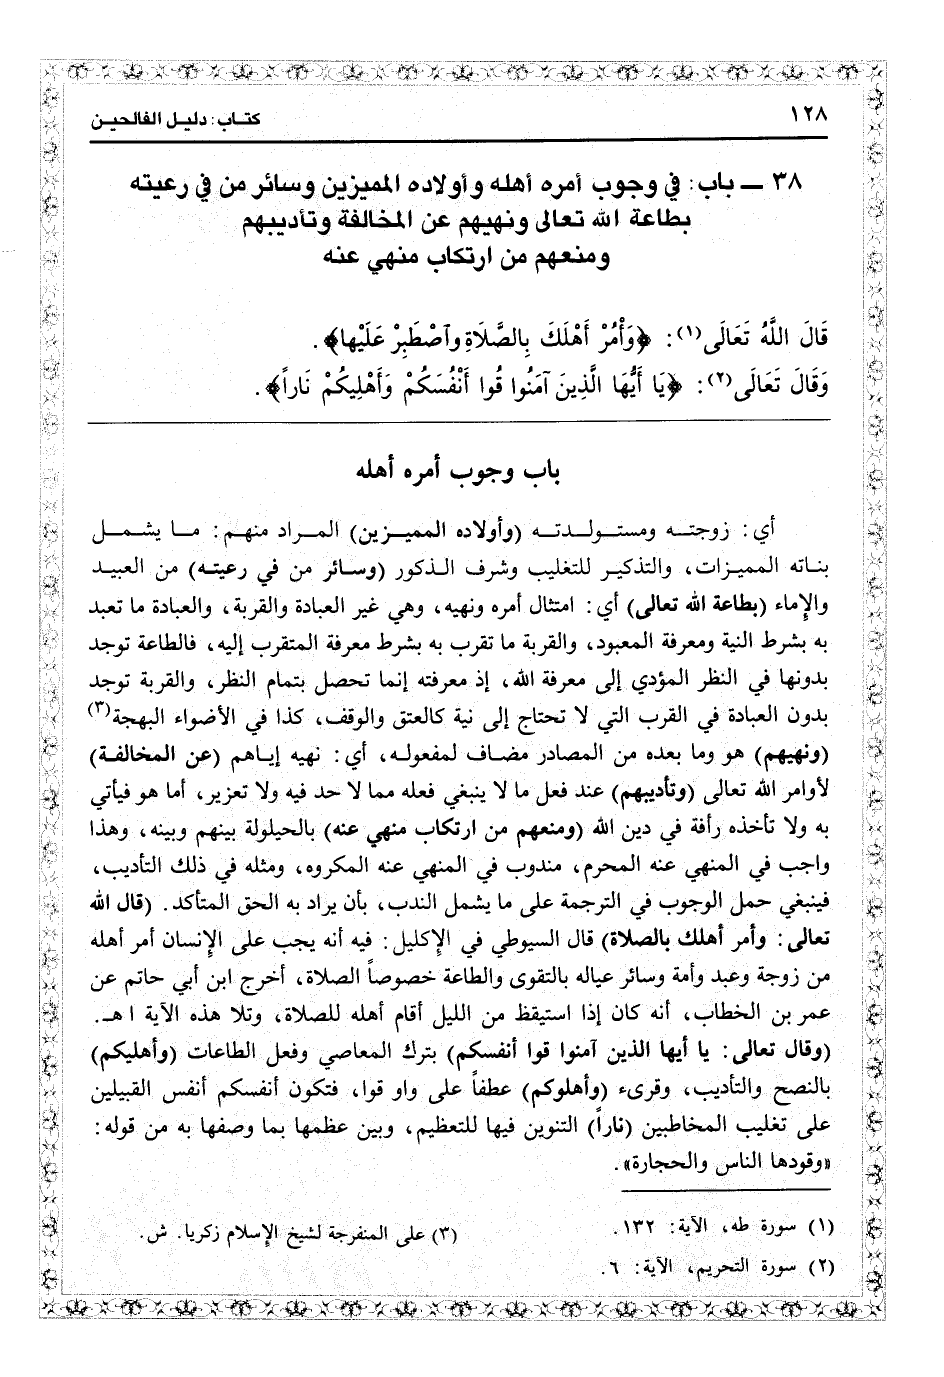 ١٢٨
كتاب: دليل الفالحين
٣٨ ـ باب: في وجوب أمره أهله وأولاده المميزين وسائر من في رعيته
بطاعة الله تعالى ونهيهم عن المخالفة وتأديبهم
ومنعهم من ارتكاب منهي عنه
قَالَ اللَّهُ تَعَالَى(١): ﴿وَأْمُرْ أَهْلَكَ بِالصَّلَاةِ وٱصْطَبِرْ عَلَيْها﴾.
وَقَالَ تَعَالَى(٢): ﴿يَا أَيُّهَا الَّذِينَ آمَنُوا قُوا أَنْفُسَكُمْ وَأَهْلِيكُمْ نَاراً﴾.
باب وجوب أمره أهله
أي: زوجتـه ومستـولـدتـه (وأولاده المميـزين) المـراد منهـم: مـا يشمـل
بناته المميزات، والتذكير للتغليب وشرف الذكور (وسائر من في رعيته) من العبيد
والإماء (بطاعة الله تعالى) أي: امتثال أمره ونهيه، وهي غير العبادة والقربة، والعبادة ما تعبد
به بشرط النية ومعرفة المعبود، والقربة ما تقرب به بشرط معرفة المتقرب إليه، فالطاعة توجد
بدونها في النظر المؤدي إلى معرفة الله، إذ معرفته إنما تحصل بتمام النظر، والقربة توجد
بدون العبادة في القرب التي لا تحتاج إلى نية كالعتق والوقف، كذا في الأضواء البهجة(٣)
(ونهيهم) هو وما بعده من المصادر مضاف لمفعوله، أي: نهيه إياهم (عن المخالفة)
لأوامر الله تعالى (وتأديبهم) عند فعل ما لا ينبغي فعله مما لا حد فيه ولا تعزير، أما هو فيأتي
به ولا تأخذه رأفة في دين الله (ومنعهم من ارتكاب منهي عنه) بالحيلولة بينهم وبينه، وهذا
واجب في المنهي عنه المحرم، مندوب في المنهي عنه المكروه، ومثله في ذلك التأديب،
فينبغي حمل الوجوب في الترجمة على ما يشمل الندب، بأن يراد به الحق المتأكد. (قال الله
تعالى: وأمر أهلك بالصلاة) قال السيوطي في الإكليل: فيه أنه يجب على الإنسان أمر أهله
من زوجة وعبد وأمة وسائر عياله بالتقوى والطاعة خصوصاً الصلاة، أخرج ابن أبي حاتم عن
عمر بن الخطاب، أنه كان إذا استيقظ من الليل أقام أهله للصلاة، وتلا هذه الآية ا هـ.
(وقال تعالى: يا أيها الذين آمنوا قوا أنفسكم) بترك المعاصي وفعل الطاعات (وأهليكم)
بالنصح والتأديب، وقرىء (وأهلوكم) عطفاً على واو قوا، فتكون أنفسكم أنفس القبيلين
على تغليب المخاطبين (ناراً) التنوين فيها للتعظيم، وبين عظمها بما وصفها به من قوله:
«وقودها الناس والحجارة».
(١) سورة طه، الآية: ١٣٢.
(٢) سورة التحريم، الآية: ٦.
(٣) على المنفرجة لشيخ الإسلام زكريا. ش.